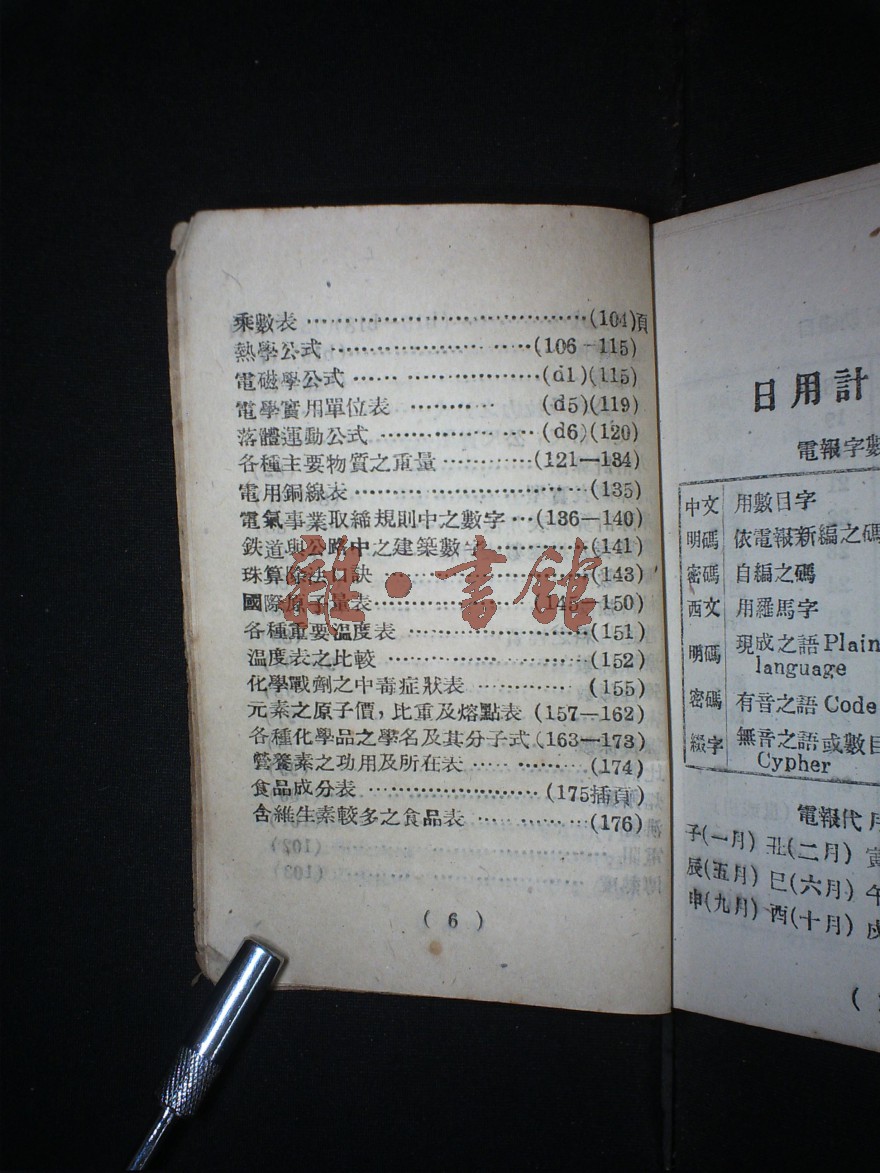 乘數表 ……………………………(104)頁
熱學公式 …………………(106–115)
電磁學公式…… ………………(d1)(115)
電學實用單位表 ………… (d5)(119)
落體運動公式 ……………… (d6)(120)
各種主要物質之重量 …………(121—134)
電用銅線表……………………(135)
電氣事業取締規則中之數字 …(136—140)
鉄道與公路中之建築數字 …………(141)
珠算除法口訣 …………………(143)
國際原子量表………………(145—150)
各種重要温度表 …………………(151)
温度表之比較 …………………(152)
化學戰劑之中毒症狀表 ………… (155)
元素之原子價，比重及熔點表 (157—162)
各種化學品之學名及其分子式(163—173)
營養素之功用及所在表 ………………(174)
食品成分表 …………………(175插頁)
含維生素較多之食品表 …………(176)
( 6 )
雜·書館
日用計
電報字數
中文 用數目字
明碼 依電報新編之碼
密碼 自編之碼
西文 用羅馬字
明碼 現成之語 Plain
language
密碼 有音之語 Code
綴字 無音之語或數目
Cypher
電報代月
子(一月) 丑(二月) 寅
辰(五月) 巳(六月) 午
申(九月) 酉(十月) 戌